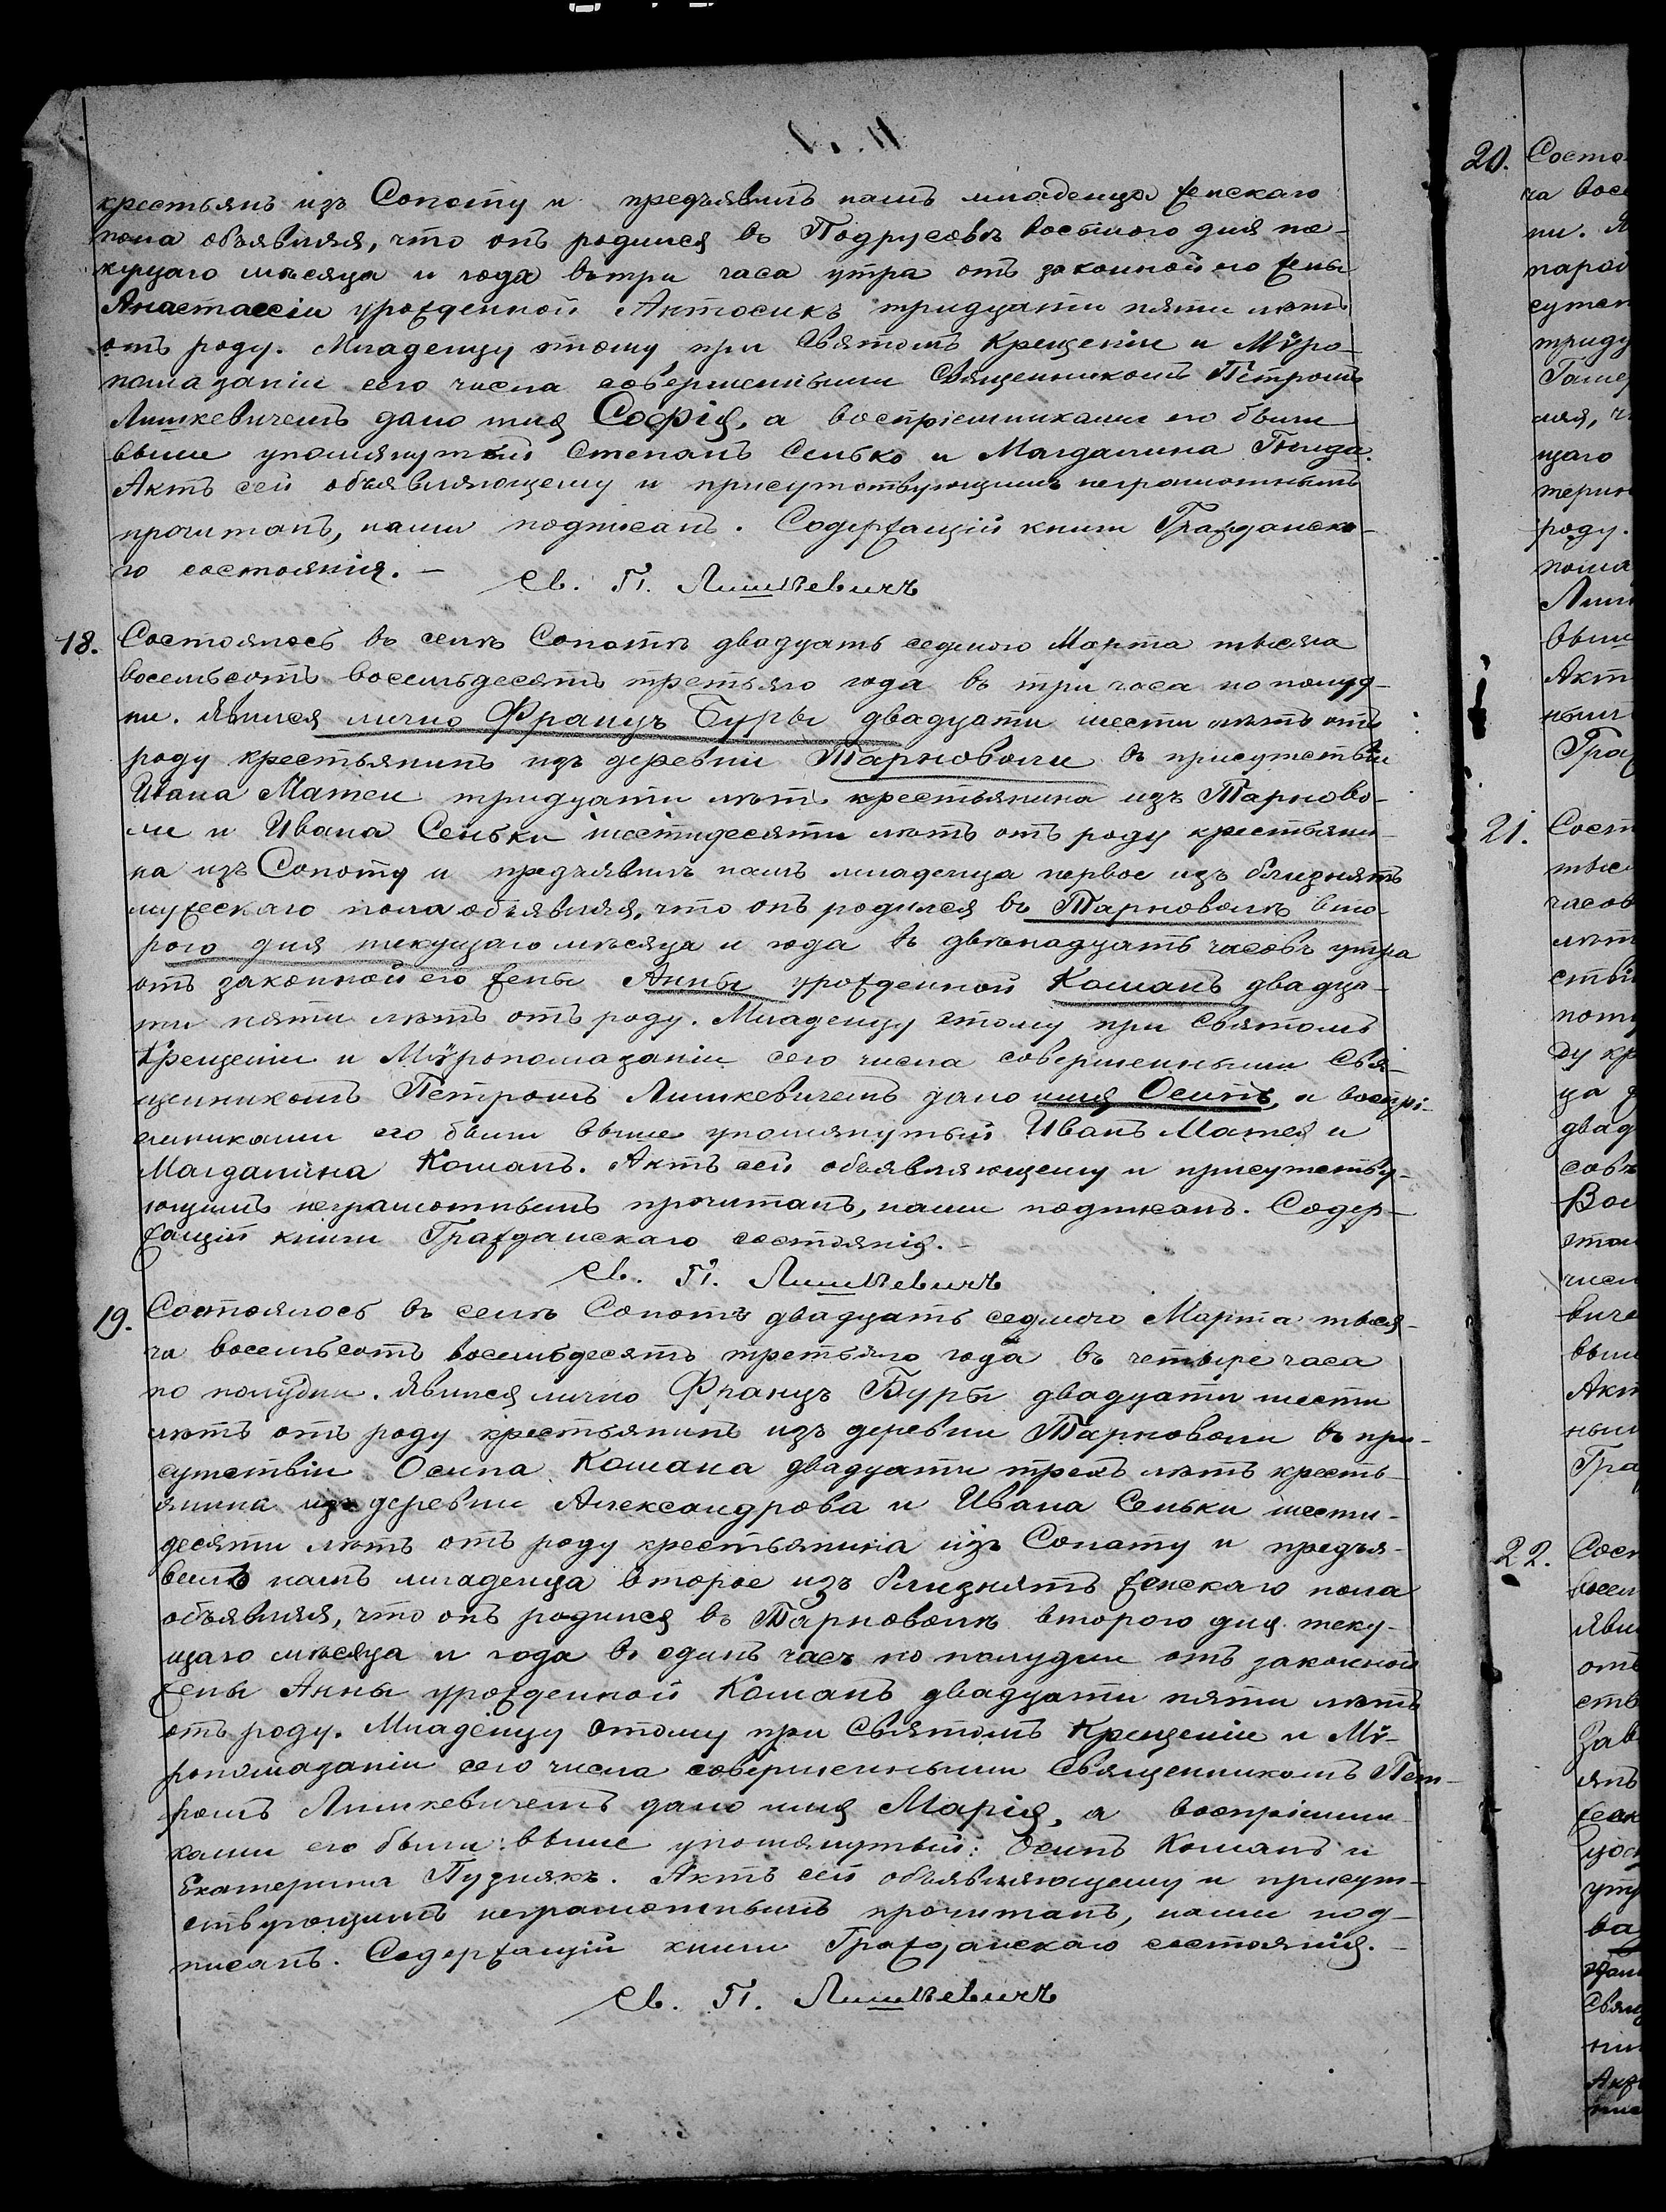 крестьянъ изъ Сопоту и предъявилъ намъ младенца женскаго
пола объявляя, что онъ родился въ Подрусовѣ восьмого дня те-
кущаго мѣсяца и года въ три часа утра отъ законной его жены
Анастассіи урожденной Антосикъ тридцати пяти лѣтъ
отъ роду. Младенцу этому при Святомъ Крещеніи и Мѵро-
помазаніи сего числа совершенными Священникомъ Петромъ
Лишкевичемъ дано имя Софія, а воспріемниками его были
выше упомянутый Степанъ Сенько и Магдалина Гнида.
Актъ сей объявляющему и присутствующимъ неграмотнымъ
прочитанъ, нами подписанъ. Содержащій книги Гражданска-
го состоянія. —
Св. П. Лишкевичъ
18. Состоялось въ селѣ Сопотѣ двадцать седьмого Марта тысяча
восемьсотъ восемьдесятъ третьяго года въ три часа по полуд-
ни. Явился лично Францъ Буры двадцати шести лѣтъ отъ
роду крестьянинъ изъ деревни Тарноволи въ присутствіи
Ивана Матеи тридцати лѣтъ крестьянина изъ Тарново-
ли и Ивана Сеньки шестидесяти лѣтъ отъ роду крестьяни-
на изъ Сопоту и предъявилъ намъ младенца первое изъ близнятъ
мужескаго пола объявляя, что онъ родился въ Тарноволѣ вто-
рого дня текущаго мѣсяца и года въ двѣнадцать часовъ утра
отъ законной его жены Анны урожденной Команъ двадца-
ти пяти лѣтъ отъ роду. Младенцу этому при Святомъ
Крещеніи и Мѵропомазаніи сего числа совершенными Свя-
щенникомъ Петромъ Лишкевичемъ дано имя Осипъ, а воспрі-
емниками его были выше упомянутый Иванъ Матея и
Магдалина Команъ. Актъ сей объявляющему и присутству-
ющимъ неграмотнымъ прочитанъ, нами подписанъ. Содер-
жащій книги Гражданскаго состоянія. —
Св. П. Лишкевичъ
19. Состоялось въ селѣ Сопотѣ двадцать седьмого Марта тыся-
ча восемьсотъ восемьдесятъ третьяго года въ четыре часа
по полудни. Явился лично Францъ Буры двадцати шести
лѣтъ отъ роду крестьянинъ изъ деревни Тарноволи въ при-
сутствіи Осипа Комана двадцати трехъ лѣтъ кресть-
янина изъ деревни Александрова и Ивана Сеньки шести-
десяти лѣтъ отъ роду крестьянина изъ Сопоту и предъя-
вилъ намъ младенца второе изъ близнятъ женскаго пола
объявляя, что онъ родился въ Тарноволѣ второго дня теку-
щаго мѣсяца и года въ одинъ часъ по полудни отъ законной
жены Анны урожденной Команъ двадцати пяти лѣтъ
отъ роду. Младенцу этому при Святомъ Крещеніи и Мѵ-
ропомазаніи сего числа совершенными Священникомъ Пет-
ромъ Лишкевичемъ дано имя Марія, а воспріемни-
ками его были: выше упомянутый: Осипъ Команъ и
Екатерина Пузнякъ. Актъ сей объявляющему и присут-
ствующимъ неграмотнымъ прочитанъ, нами под-
писанъ. Содержащій книги Гражданскаго состоянія. —
Св. П. Лишкевичъ
20. Состо
ча восе
ни. Я
21. Сост
тыся
часов
лѣт
стві
22. Сост
восем
яви
отъ